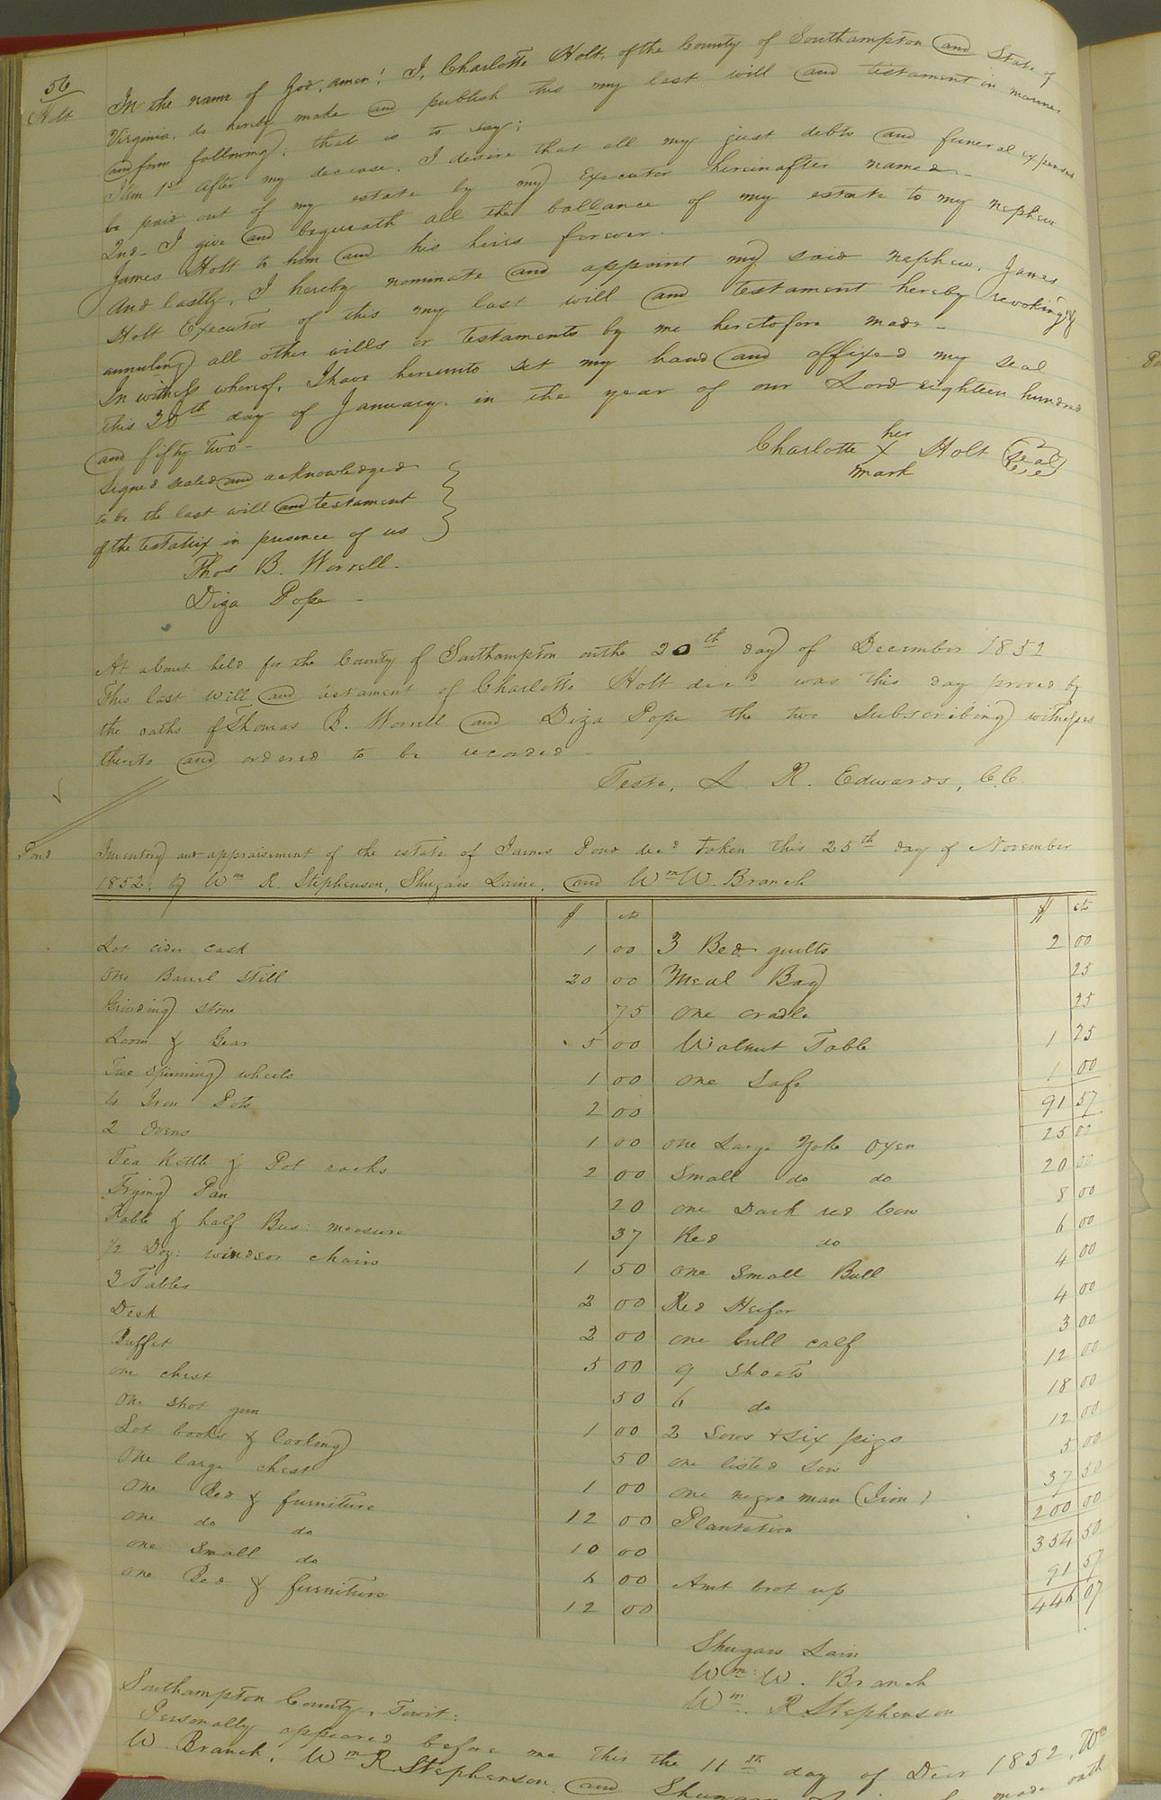 56
Holt
In the name of God, amen! I, Charlotte Holt, of the County of Southampton and State of
Virginia, do hereby make and publish this my last will and testament in manner
and form following, that is to say;
Item 1st After my decease, I desire that all my just debts and funeral expenses
be paid out of my estate by my Executor hereinafter named.
2nd I give and bequeath all the ballance of my estate to my nephew
James Holt to him and his heirs forever.
And lastly, I hereby nominate and appoint my said nephew, James
Holt Executor of this my last will and testament hereby revoking &
annuling all other wills or testaments by me heretofore made
In witness whereof, I have hereunto set my hand and affixed my seal
this 30th day of January in the year of our Lord eighteen hundred
and fifty two
Charlotte her X mark Holt Seal
Signed sealed and acknowledged
to be the last will and testament
of the testatrix in presence of us
Thos B. Worrell
Diza Pope
At a Court held for the County of Southampton on the 20th day of December 1852
This last will and testament of Charlotte Holt decd was this day proved by
the oaths of Thomas B. Worrell and Diza Pope the two subscribing witnesses
thereto and ordered to be recorded
Teste, L. R. Edwards, C.C.
Pond
Inventory and appraisement of the estate of James Pond decd taken this 25th day of November
1852, by Wm R. Stephenson, Shugars Laine, and Wm W. Branch
$ cts $ cts
Lot cider cask 1 00 3 Bed quilts 2 00
One Barrel Still 20 00 Meal Bag 25
Grinding stone 75 one cradle 25
Loom & Gear 5 00 Walnut Table 1 25
Two Spinning wheels 1 00 one Safe 1 00
4 Iron Pots 2 00 91 57
2 Ovens 1 00 one Large Yoke Oxen 25 00
Tea Kettle & Pot racks 2 00 Small do do 20 00
Frying Pan 20 one Dark red Cow 8 00
Table & half Bus: measure 37 Red do 6 00
1/2 Doz: windsor chairs 1 50 one Small Bull 4 00
3 Tables 2 00 Red Heifer 4 00
Desk 2 00 one bull calf 3 00
Buffet 5 00 9 Shoats 12 00
one chest 50 6 do 18 00
One shot gun 1 00 2 Sows & Six pigs 12 00
Lot books & 50 one listed Sow 5 00
One large chest 1 00 one negro man 37 50
One Bed & furniture 12 00 Plantation 200 00
one do do 10 00 354 50
one Small do 6 00 Amt brot up 91 57
one Bed & furniture 12 00 446 07
Shugars Lain
Wm W. Branch
Wm R. Stephenson
Southampton County, Towit:
Personally appeared before me this the 11th day of Decr 1852, Wm
W. Branch, Wm R. Stephenson and made oath